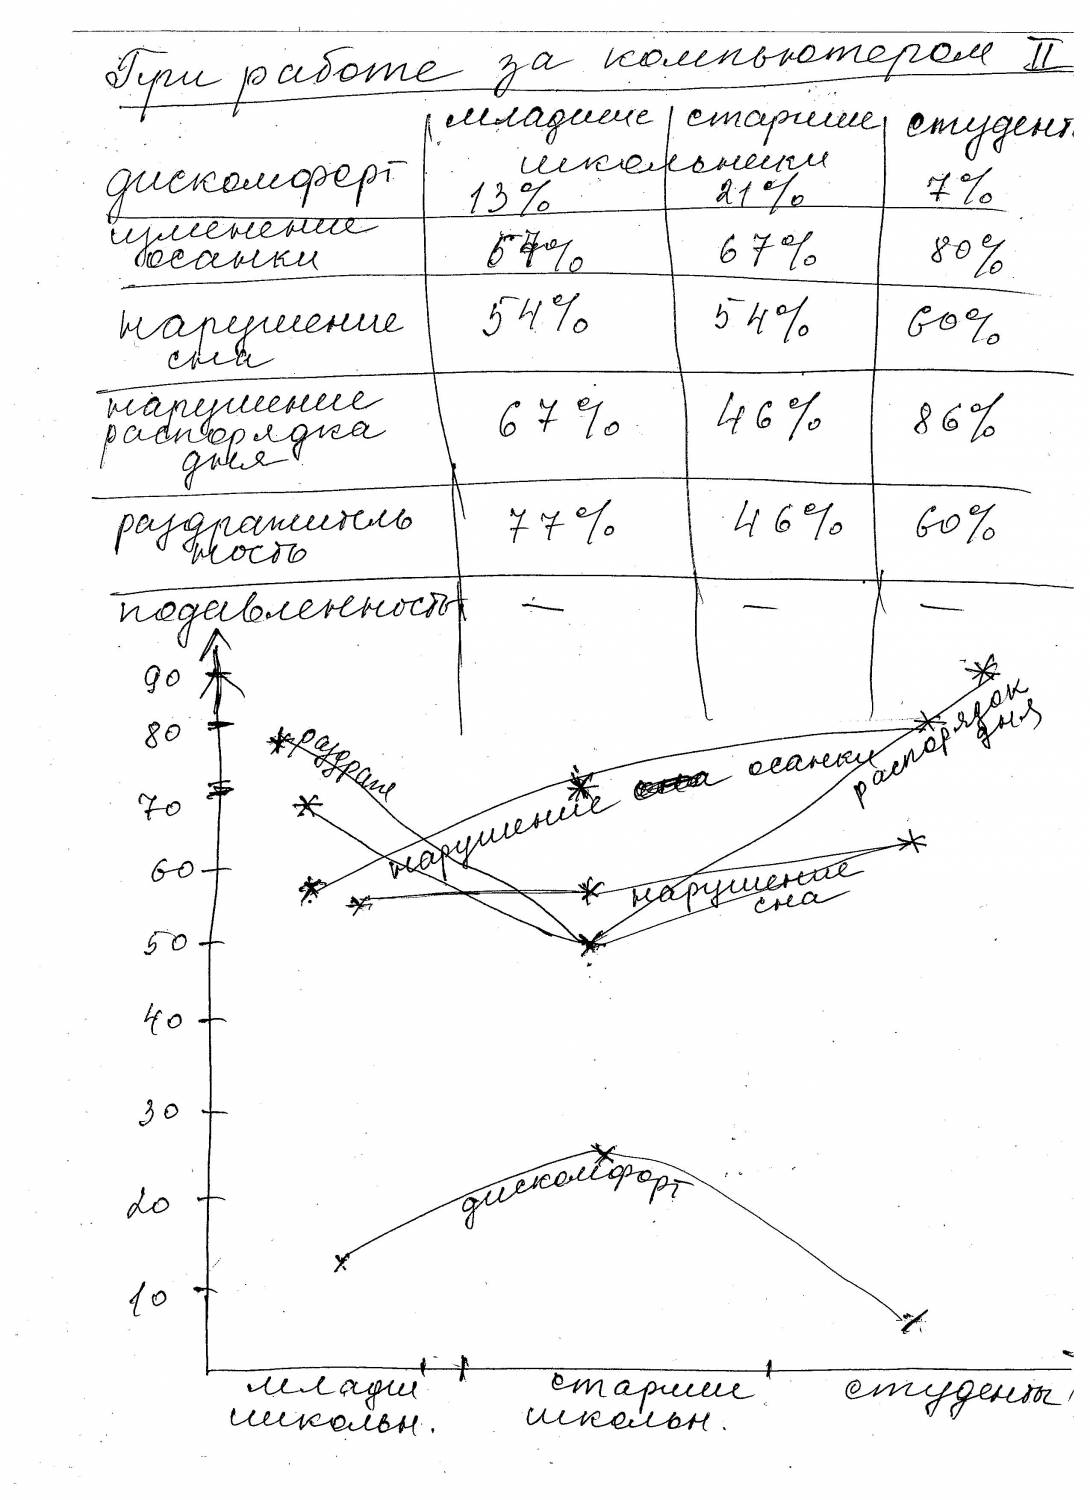 При работе за компьютером II
младшие старшие студент
школьники
дискомфорт 13% 21% 7%
изменение
осанки 57% 67% 80%
нарушение 54% 54% 60%
сна
нарушение
распорядка 67% 46% 86%
дня
раздражитель 77% 46% 60%
ность
подавленность — — —
90
80
70
60
50
40
30
20
10
раздраж
нарушение осанки
распорядок
дня
нарушение
сна
дискомфорт
младш старши студенты
школьн. школьн.